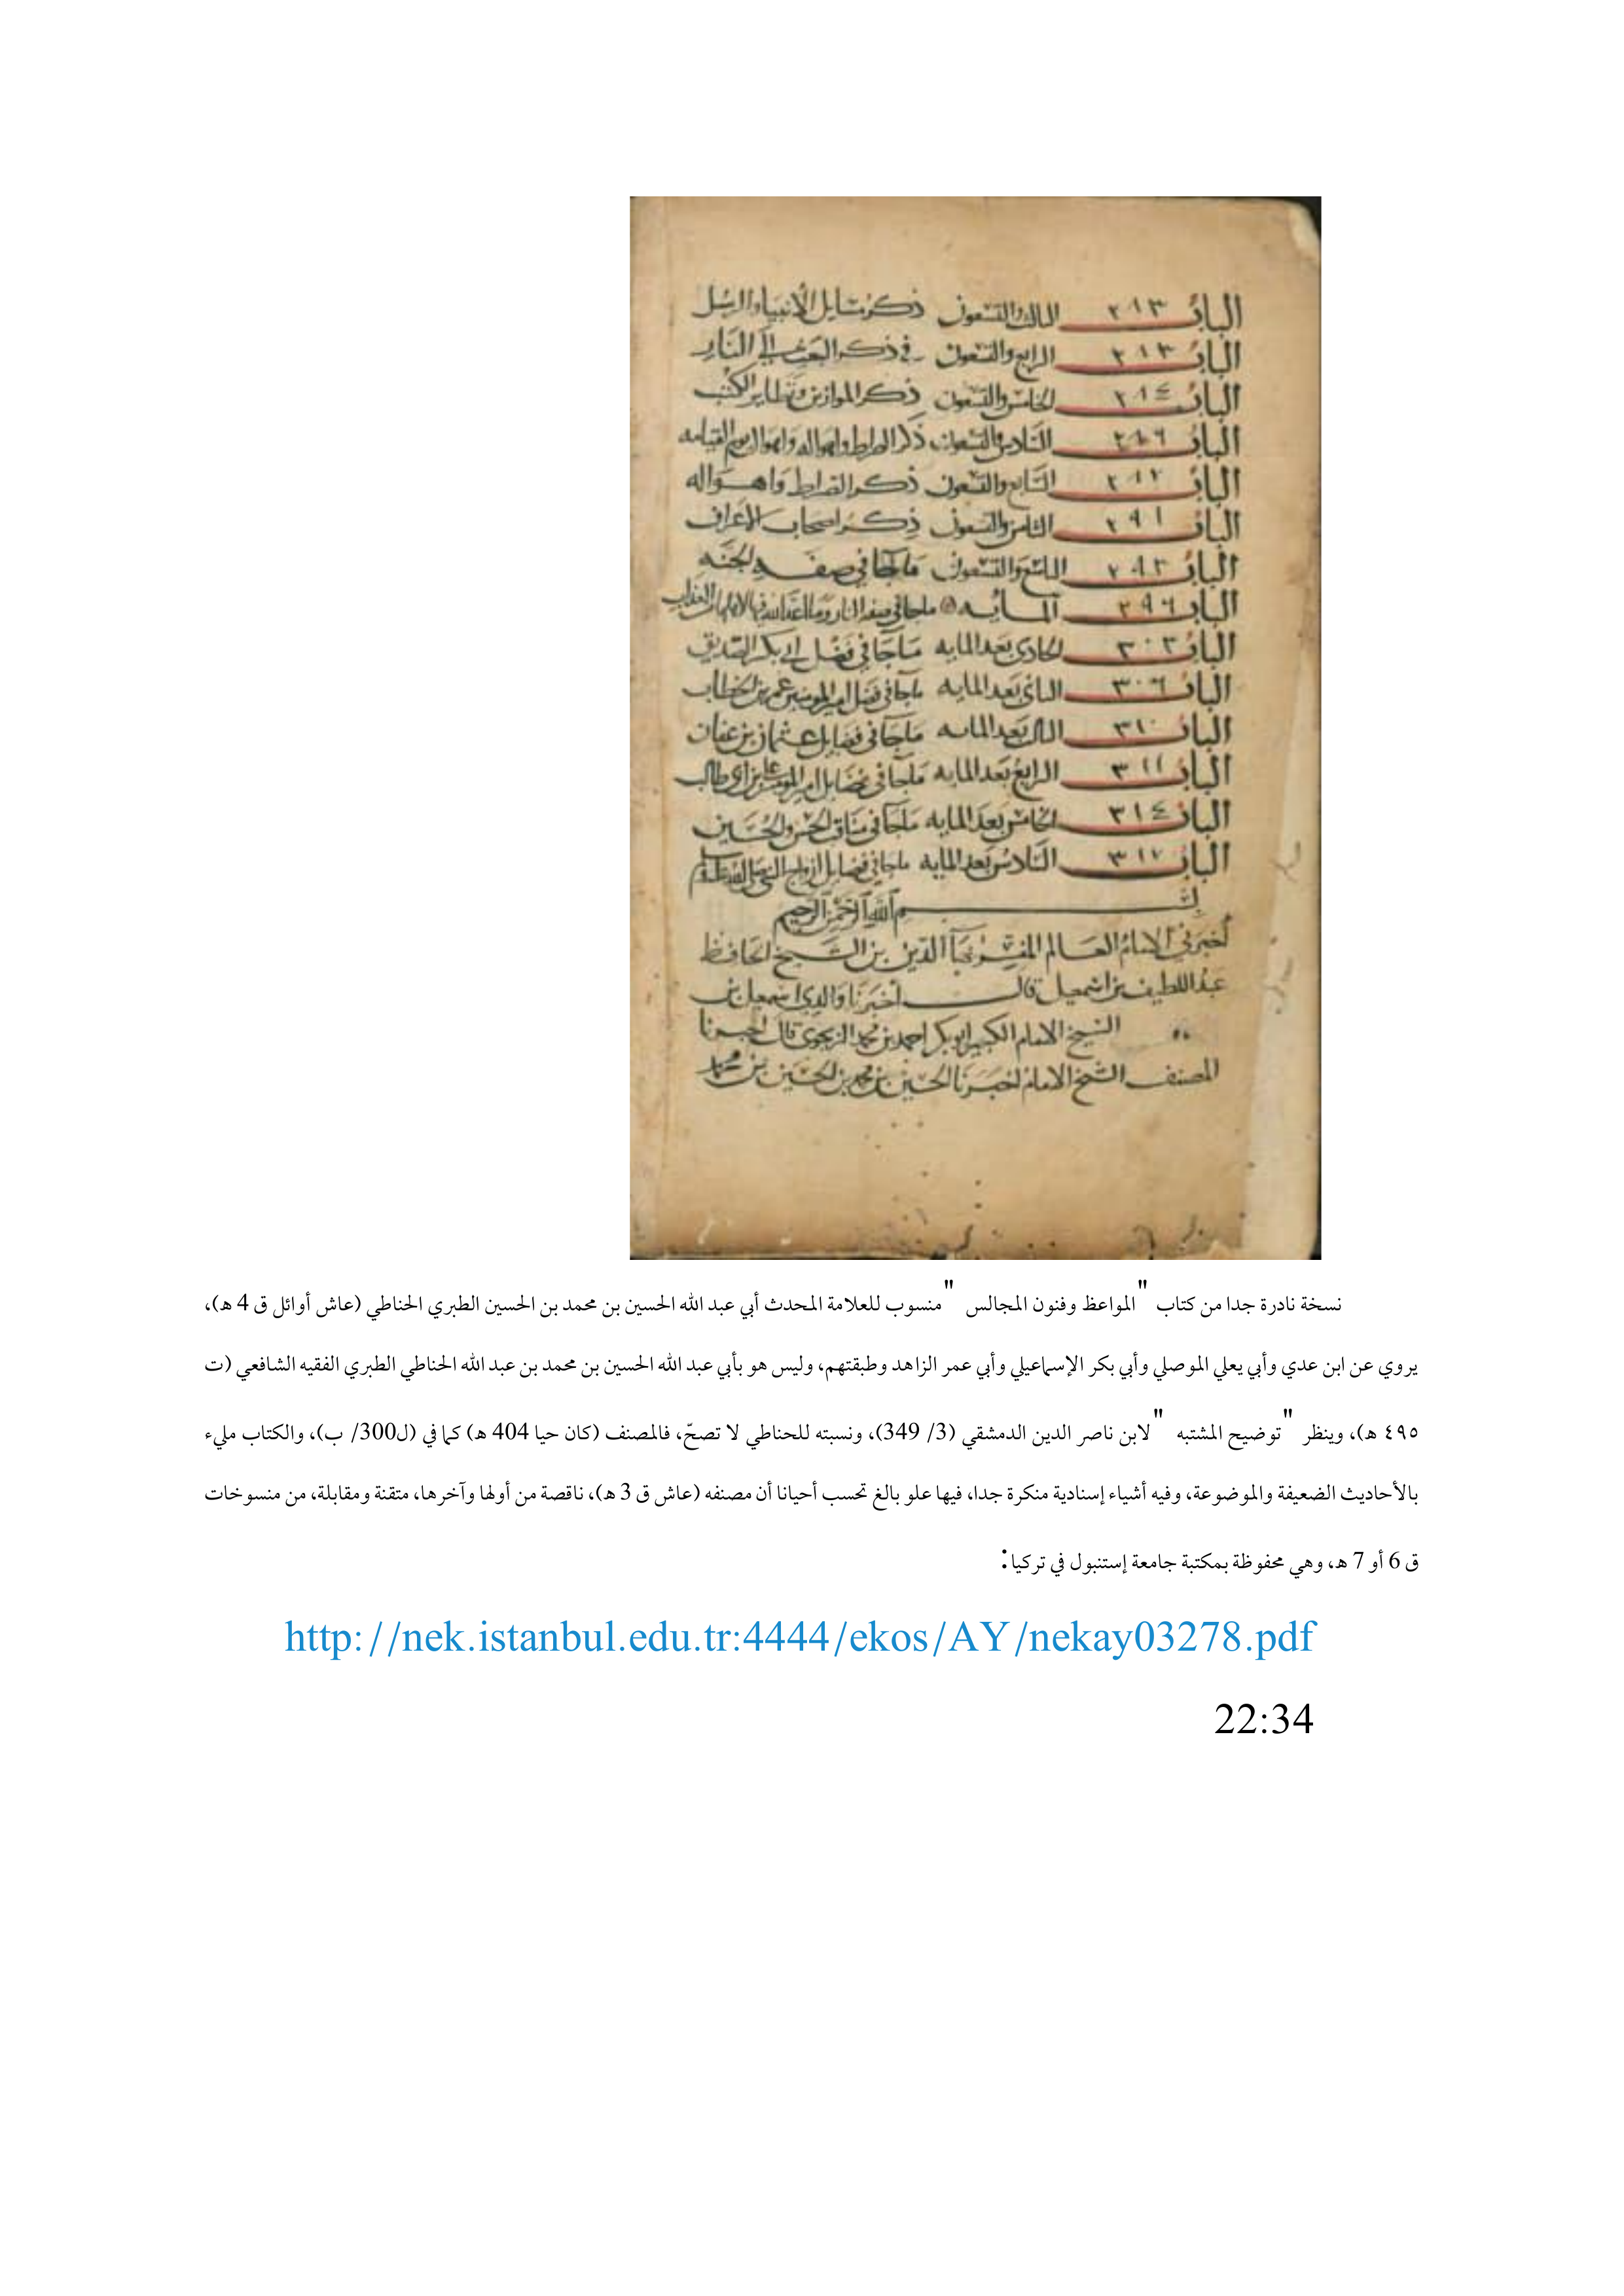 الباب ٢٨٣ الثالث والتسعون ذكر مسايل الأنبياء والرسل
الباب ٢٨٣ الرابع والتسعون في ذكر البعث إلى النار
الباب ٢٨٤ الخامس والتسعون ذكر الموازين وتطاير الكتب
الباب ٢٨٦ السادس والتسعون ذكر الصراط واهواله واهوال يوم القيامه
الباب السابع والتسعون ذكر الصراط واهواله
الباب ٢٩١ الثامن والتسعون ذكر اصحاب الاعراف
الباب ٢٩٣ التاسع والتسعون ماجا في صفه الجنه
الباب ٢٩٦ المايه ماجا في صفه النار وما اعد الله فيها لاهلها من العذاب
الباب ٣٠٣ الحادي بعد المايه ماجا في فضل ابي بكر الصديق
الباب ٣٠٦ الثاني بعد المايه ماجا في فضل امير المومنين عمر بن الخطاب
الباب ٣١٠ الثالث بعد المايه ماجا في فضايل عثمان بن عفان
الباب ٣١١ الرابع بعد المايه ماجا في فضايل امير المومنين علي بن ابي طالب
الباب ٣١٤ الخامس بعد المايه ماجا في مناقب الحسن والحسين
الباب ٣١٧ السادس بعد المايه ماجا في فضايل ازواج النبي صلى الله عليه وسلم
بسم الله الرحمن الرحيم
أخبرني الامام العالم المفتي نجا الدين بن الشيخ الحافظ
عبد اللطيف بن اسمعيل قال أخبرنا والدي اسمعيل بن
الشيخ الامام الكبير ابو بكر احمد بن محمد الزنجوي قال اخبرنا
المصنف الشيخ الامام اخبرنا الحسين بن محمد بن الحسين بن محمد
نسخة نادرة جدا من كتاب "المواعظ وفنون المجالس" منسوب للعلامة المحدث أبي عبد الله الحسين بن محمد بن الحسين الطبري الحناطي (عاش أوائل ق 4 هـ)،
يروي عن ابن عدي وأبي يعلي الموصلي وأبي بكر الإسماعيلي وأبي عمر الزاهد وطبقتهم، وليس هو بأبي عبد الله الحسين بن محمد بن عبد الله الحناطي الطبري الفقيه الشافعي (ت
٤٩٥ هـ)، وينظر "توضيح المشتبه" لابن ناصر الدين الدمشقي (3/ 349)، ونسبته للحناطي لا تصحّ، فالمصنف (كان حيا 404 هـ) كما في (ل300/ ب)، والكتاب مليء
بالأحاديث الضعيفة والموضوعة، وفيه أشياء إسنادية منكرة جدا، فيها علو بالغ تحسب أحيانا أن مصنفه (عاش ق 3 هـ)، ناقصة من أولها وآخرها، متقنة ومقابلة، من منسوخات
ق 6 أو 7 هـ، وهي محفوظة بمكتبة جامعة إستنبول في تركيا:
http://nek.istanbul.edu.tr:4444/ekos/AY/nekay03278.pdf
22:34